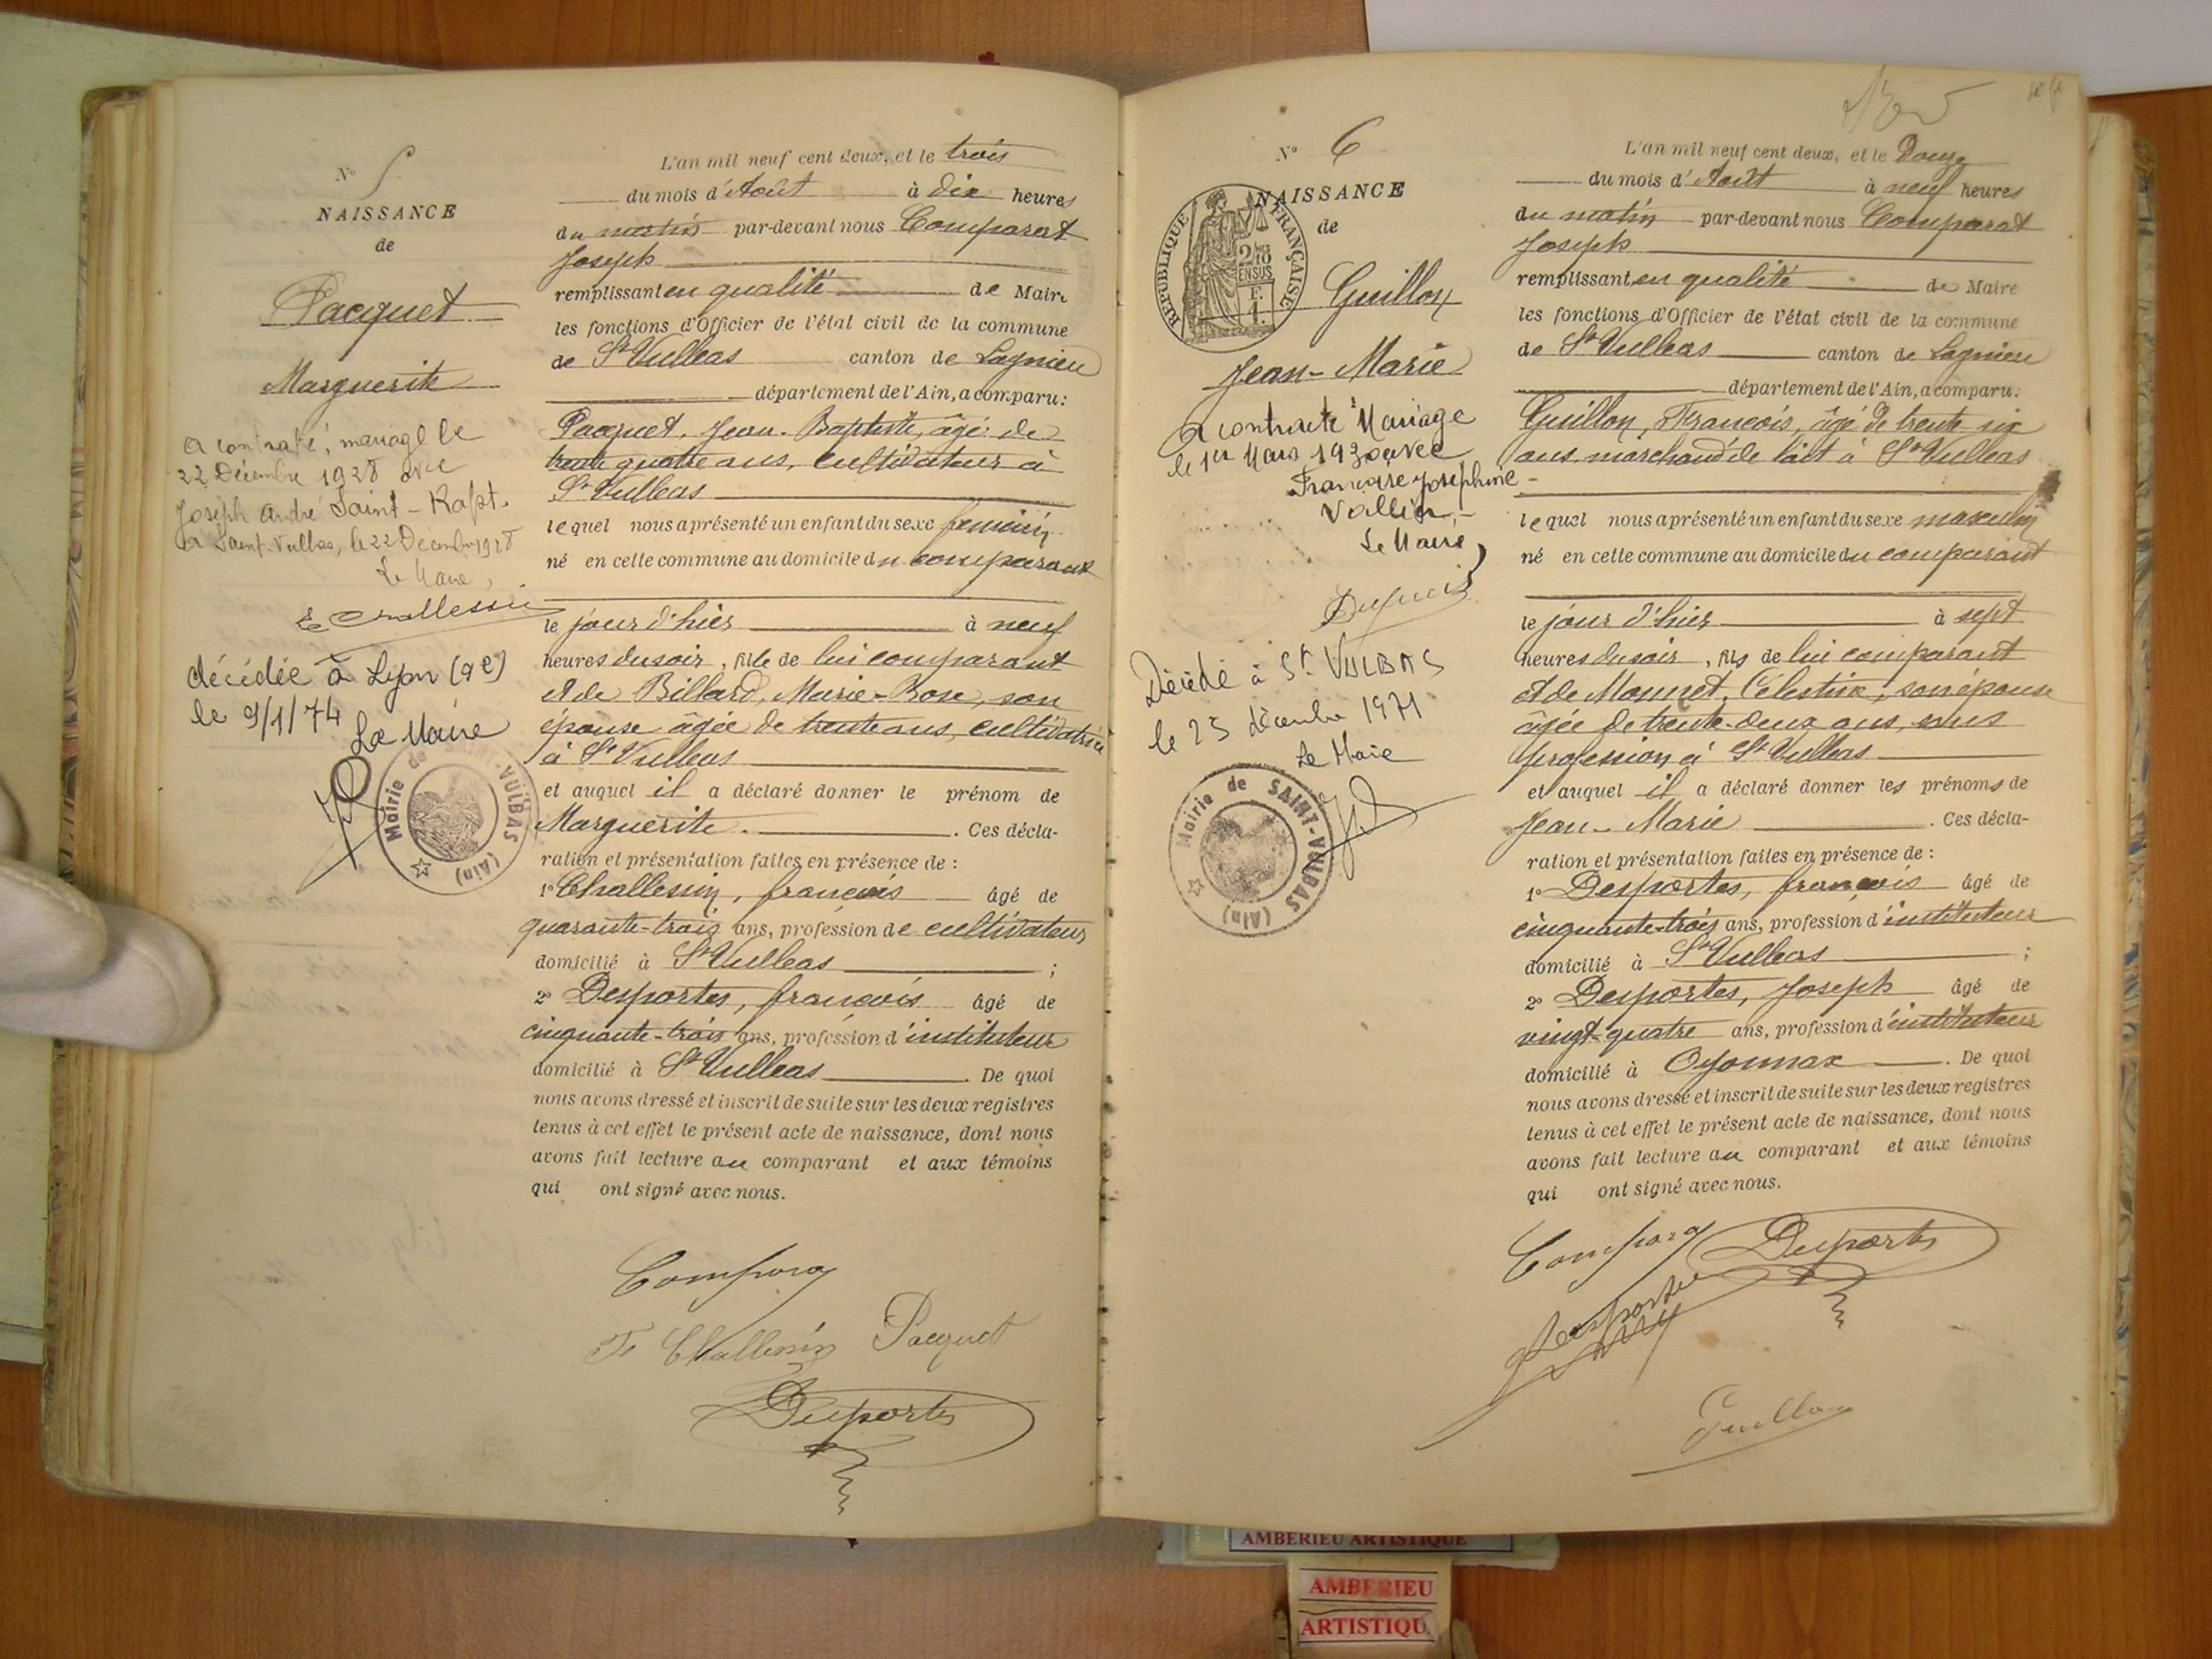 N° 5
NAISSANCE
de
Pacquet
Marguerite
a contracté mariage le
22 Décembre 1928 avec
Joseph André Saint-
à Saint-Vulbas, le 22 Décembre 1928
Le Maire,
décédée à Lyon (9e)
le 9/1/74
Le Maire
Mairie de VULBAS (Ain)
L'an mil neuf cent deux, et le trois
du mois d'Août à dix heures
du matin par-devant nous Comparat
Joseph
remplissant en qualité de Maire
les fonctions d'Officier de l'état civil de la commune
de St Vulbas canton de Lagnieu
département de l'Ain, a comparu:
Pacquet, Jean-Baptiste, âgé de
trente quatre ans, cultivateur à
St Vulbas
lequel nous a présenté un enfant du sexe féminin
né en cette commune au domicile du comparant
le jour d'hier à neuf
heures du soir, fille de lui comparant
et de Billard, Marie-Rose, son
épouse âgée de trente ans, cultivatrice
à St Vulbas
et auquel il a déclaré donner le prénom de
Marguerite. Ces décla-
ration et présentation faites en présence de:
1° Challessin, françois âgé de
quarante-trois ans, profession de cultivateur
domicilié à St Vulbas ;
2° Desportes, françois âgé de
cinquante-trois ans, profession d'instituteur
domicilié à St Vulbas. De quoi
nous avons dressé et inscrit de suite sur les deux registres
tenus à cet effet le présent acte de naissance, dont nous
avons fait lecture au comparant et aux témoins
qui ont signé avec nous.
Pacquet
Desportes
N° 6
NAISSANCE
de
RÉPUBLIQUE FRANÇAISE
Guillon
Jean-Marie
a contracté Mariage
le 1er Mars 1930 avec
Françoise Joséphine
Vallin
Le Maire,
Décédé à St VULBAS
le 25 décembre 1971
Le Maire
Mairie de SAINT-VULBAS (Ain)
L'an mil neuf cent deux, et le Douze
du mois d'Août à neuf heures
du matin par-devant nous Comparat
Joseph
remplissant en qualité de Maire
les fonctions d'Officier de l'état civil de la commune
de St Vulbas canton de Lagnieu
département de l'Ain, a comparu:
Guillon, François, âgé de trente-six
ans marchand de lait à St Vulbas
lequel nous a présenté un enfant du sexe masculin
né en cette commune au domicile du comparant
le jour d'hier à sept
heures du soir, fils de lui comparant
et de Monnet, Célestine, son épouse
âgée de trente-deux ans, sans
profession à St Vulbas
et auquel il a déclaré donner les prénoms de
Jean-Marie. Ces décla-
ration et présentation faites en présence de:
1° Desportes, françois âgé de
cinquante-trois ans, profession d'instituteur
domicilié à St Vulbas ;
2° Desportes, Joseph âgé de
vingt-quatre ans, profession d'instituteur
domicilié à Oyonnax. De quoi
nous avons dressé et inscrit de suite sur les deux registres
tenus à cet effet le présent acte de naissance, dont nous
avons fait lecture au comparant et aux témoins
qui ont signé avec nous.
Desportes
Guillon
AMBERIEU ARTISTIQUE
AMBERIEU
ARTISTIQU